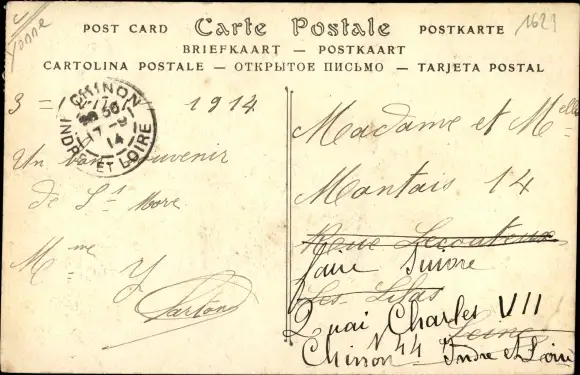 C
Yonne
1621
POST CARD Carte Postale POSTKARTE
BRIEFKAART — POSTKAART
CARTOLINA POSTALE — ОТКРЫТОЕ ПИСЬМО — TARJETA POSTAL
CHINON
17-9
14
INDRE ET LOIRE
3 = 1914
Un bon souvenir
de St More
Mme Y
Madame et Melle
Mantais 14
Rue Lecouteux
faire suivre
Les Lilas
Seine
Quai Charles VII
Chinon N 44 Indre et Loire